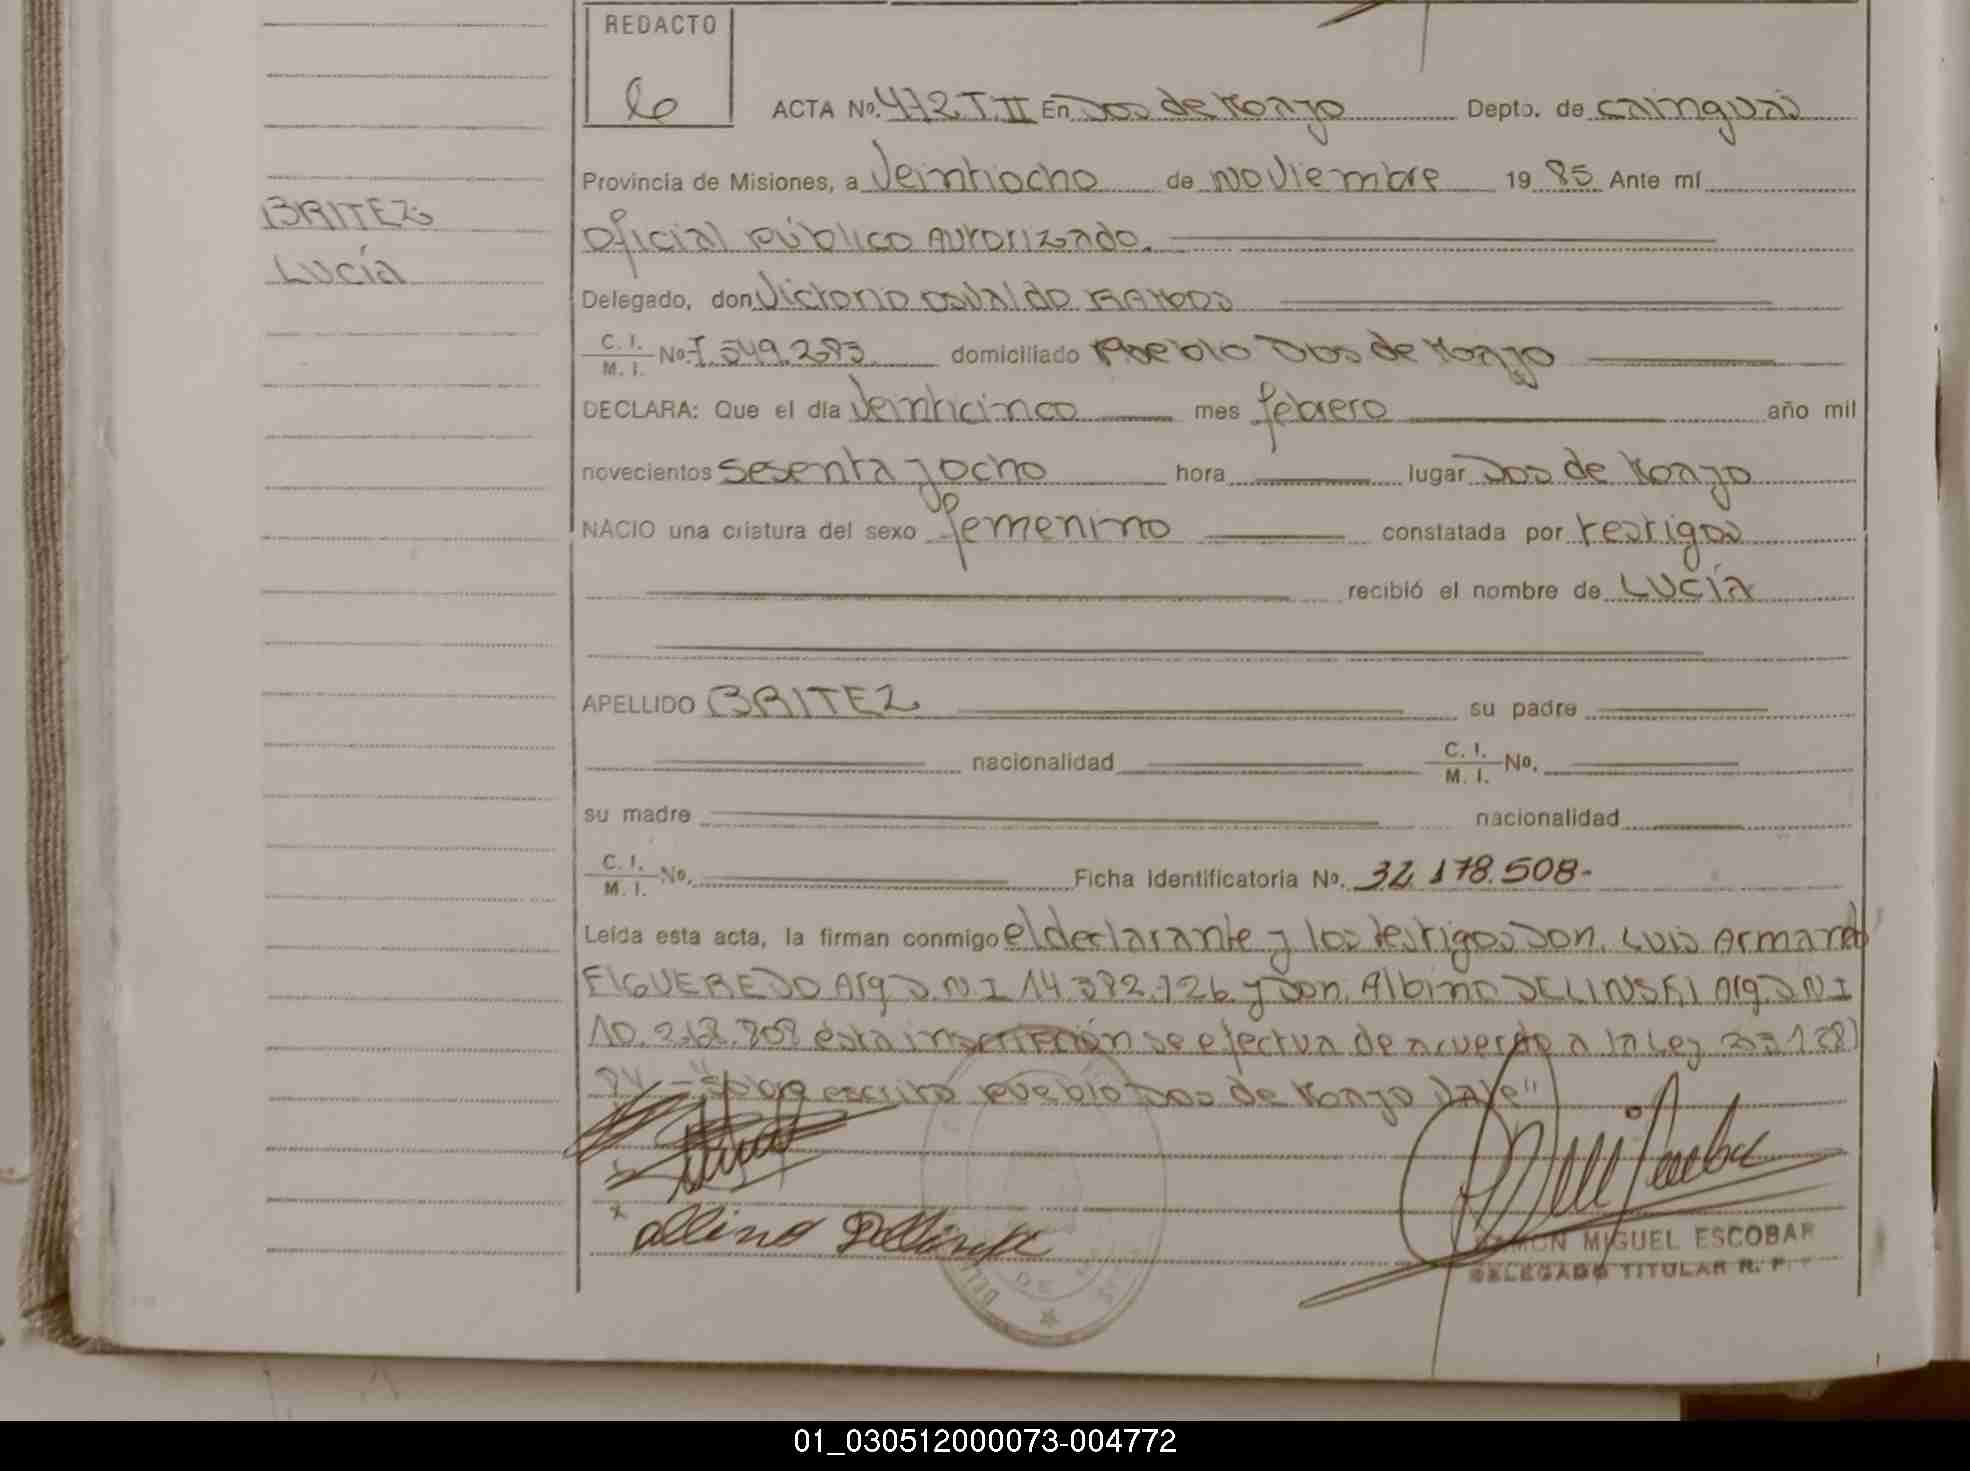 REDACTO
ACTA Nº. 472 T. II En Dos de Mayo Depto. de Cainguás
Provincia de Misiones, a Veintiocho de Noviembre 19 85 Ante mí
BRITEZ
Oficial Público Autorizado.
LUCÍA
Delegado, don Victorio Osvaldo RAMOS
C. I.
M. I. Nº 7.549.293 domiciliado Pueblo Dos de Mayo
DECLARA: Que el día Veinticinco mes febrero año mil
novecientos sesenta y ocho hora lugar Dos de Mayo
NACIO una criatura del sexo femenino constatada por testigos
recibió el nombre de LUCÍA
APELLIDO BRITEZ su padre
nacionalidad C. I.
M. I. Nº.
su madre nacionalidad
C. I.
M. I. Nº. Ficha Identificatoria Nº. 32.178.508-
Leída esta acta, la firman conmigo el declarante y los testigos Don. Luis Armando
FIGUEREDO Arg D.N.I 14.392.126 y Don. Albino DELINSKI Arg D N I
esta inscripción se efectua de acuerdo a la Ley
escrito pueblo Dos de Mayo Vale"
RAMON MIGUEL ESCOBAR
DELEGADO TITULAR R. P.
01_030512000073-004772